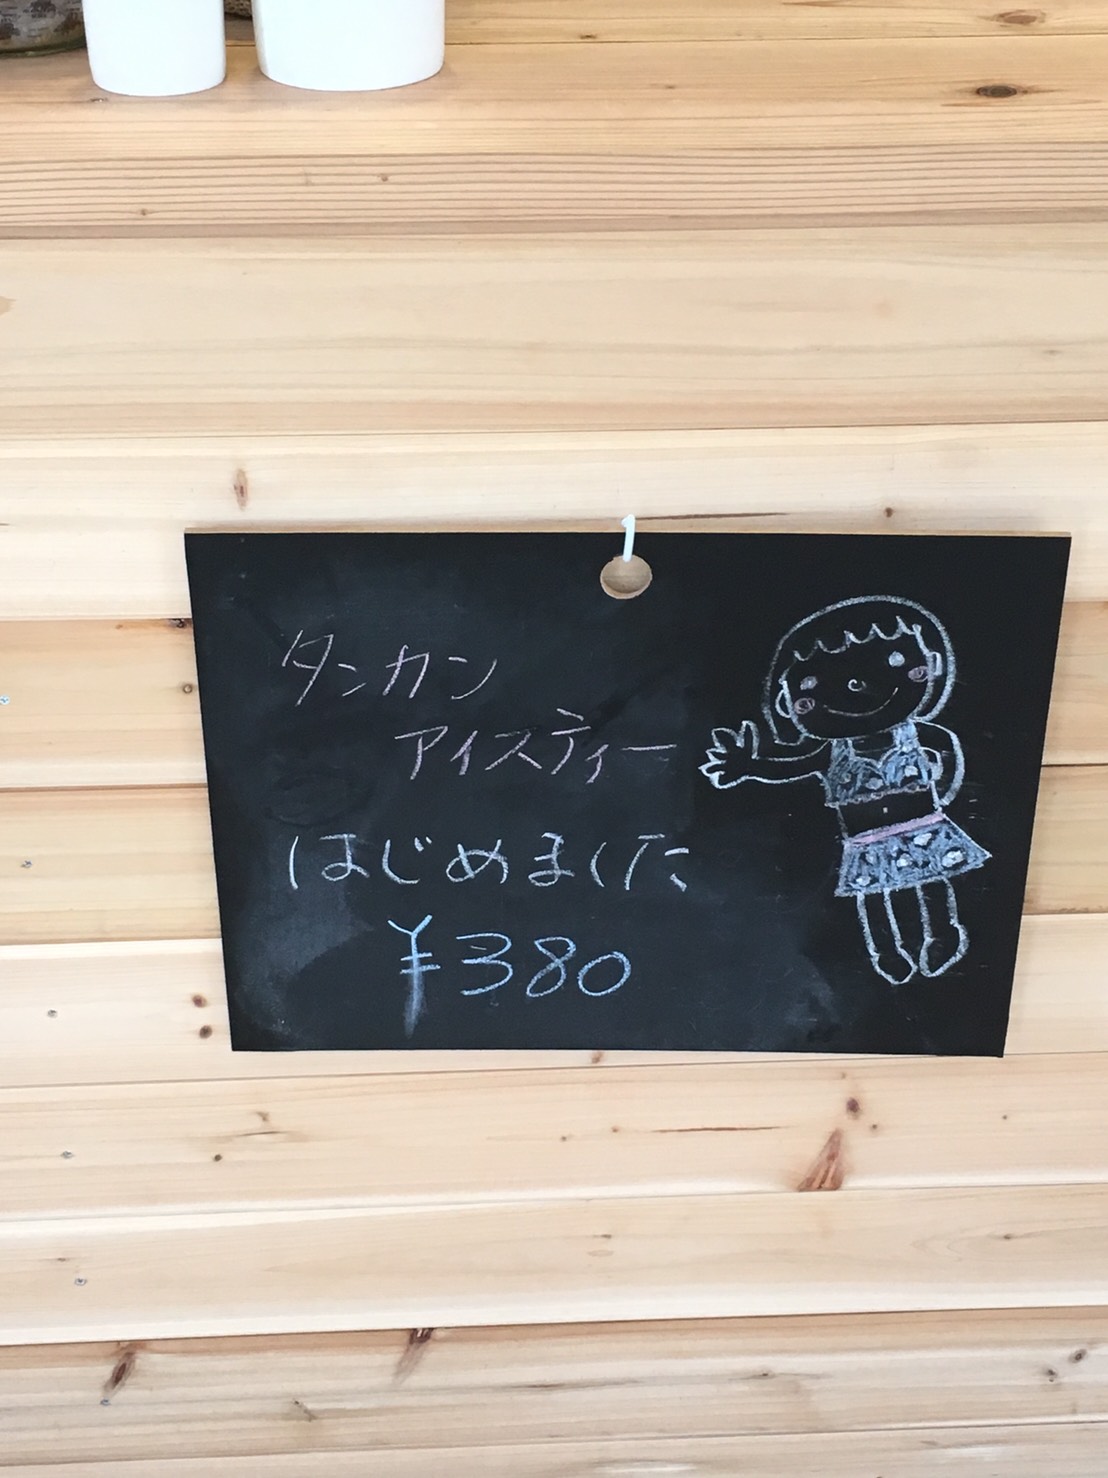 タンカン
アイスティー
はじめました
¥380